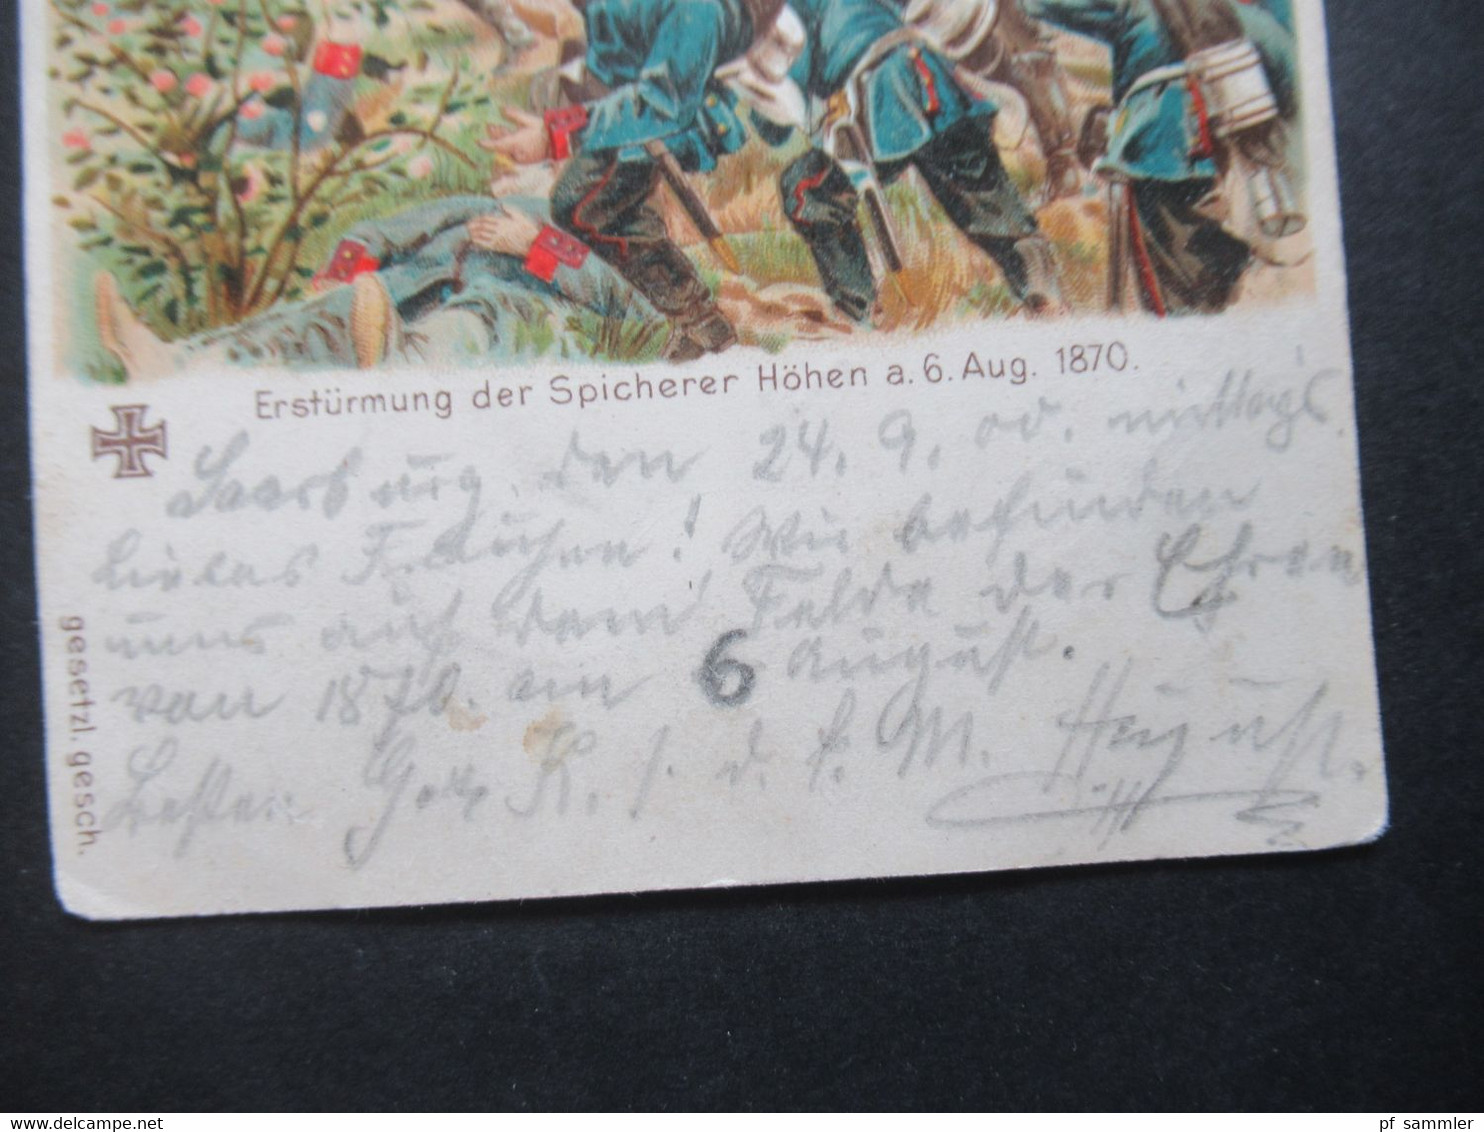 Erstürmung der Spicherer Höhen a. 6. Aug. 1870.
Saarburg, den 24. 9. 00. mittags.
Liebes Frauchen! Wir befinden
uns auf dem Felde der Ehren
von 1870. am 6 August.
Besten Gruß K. August.
gesetzl. gesch.
pf_sammler